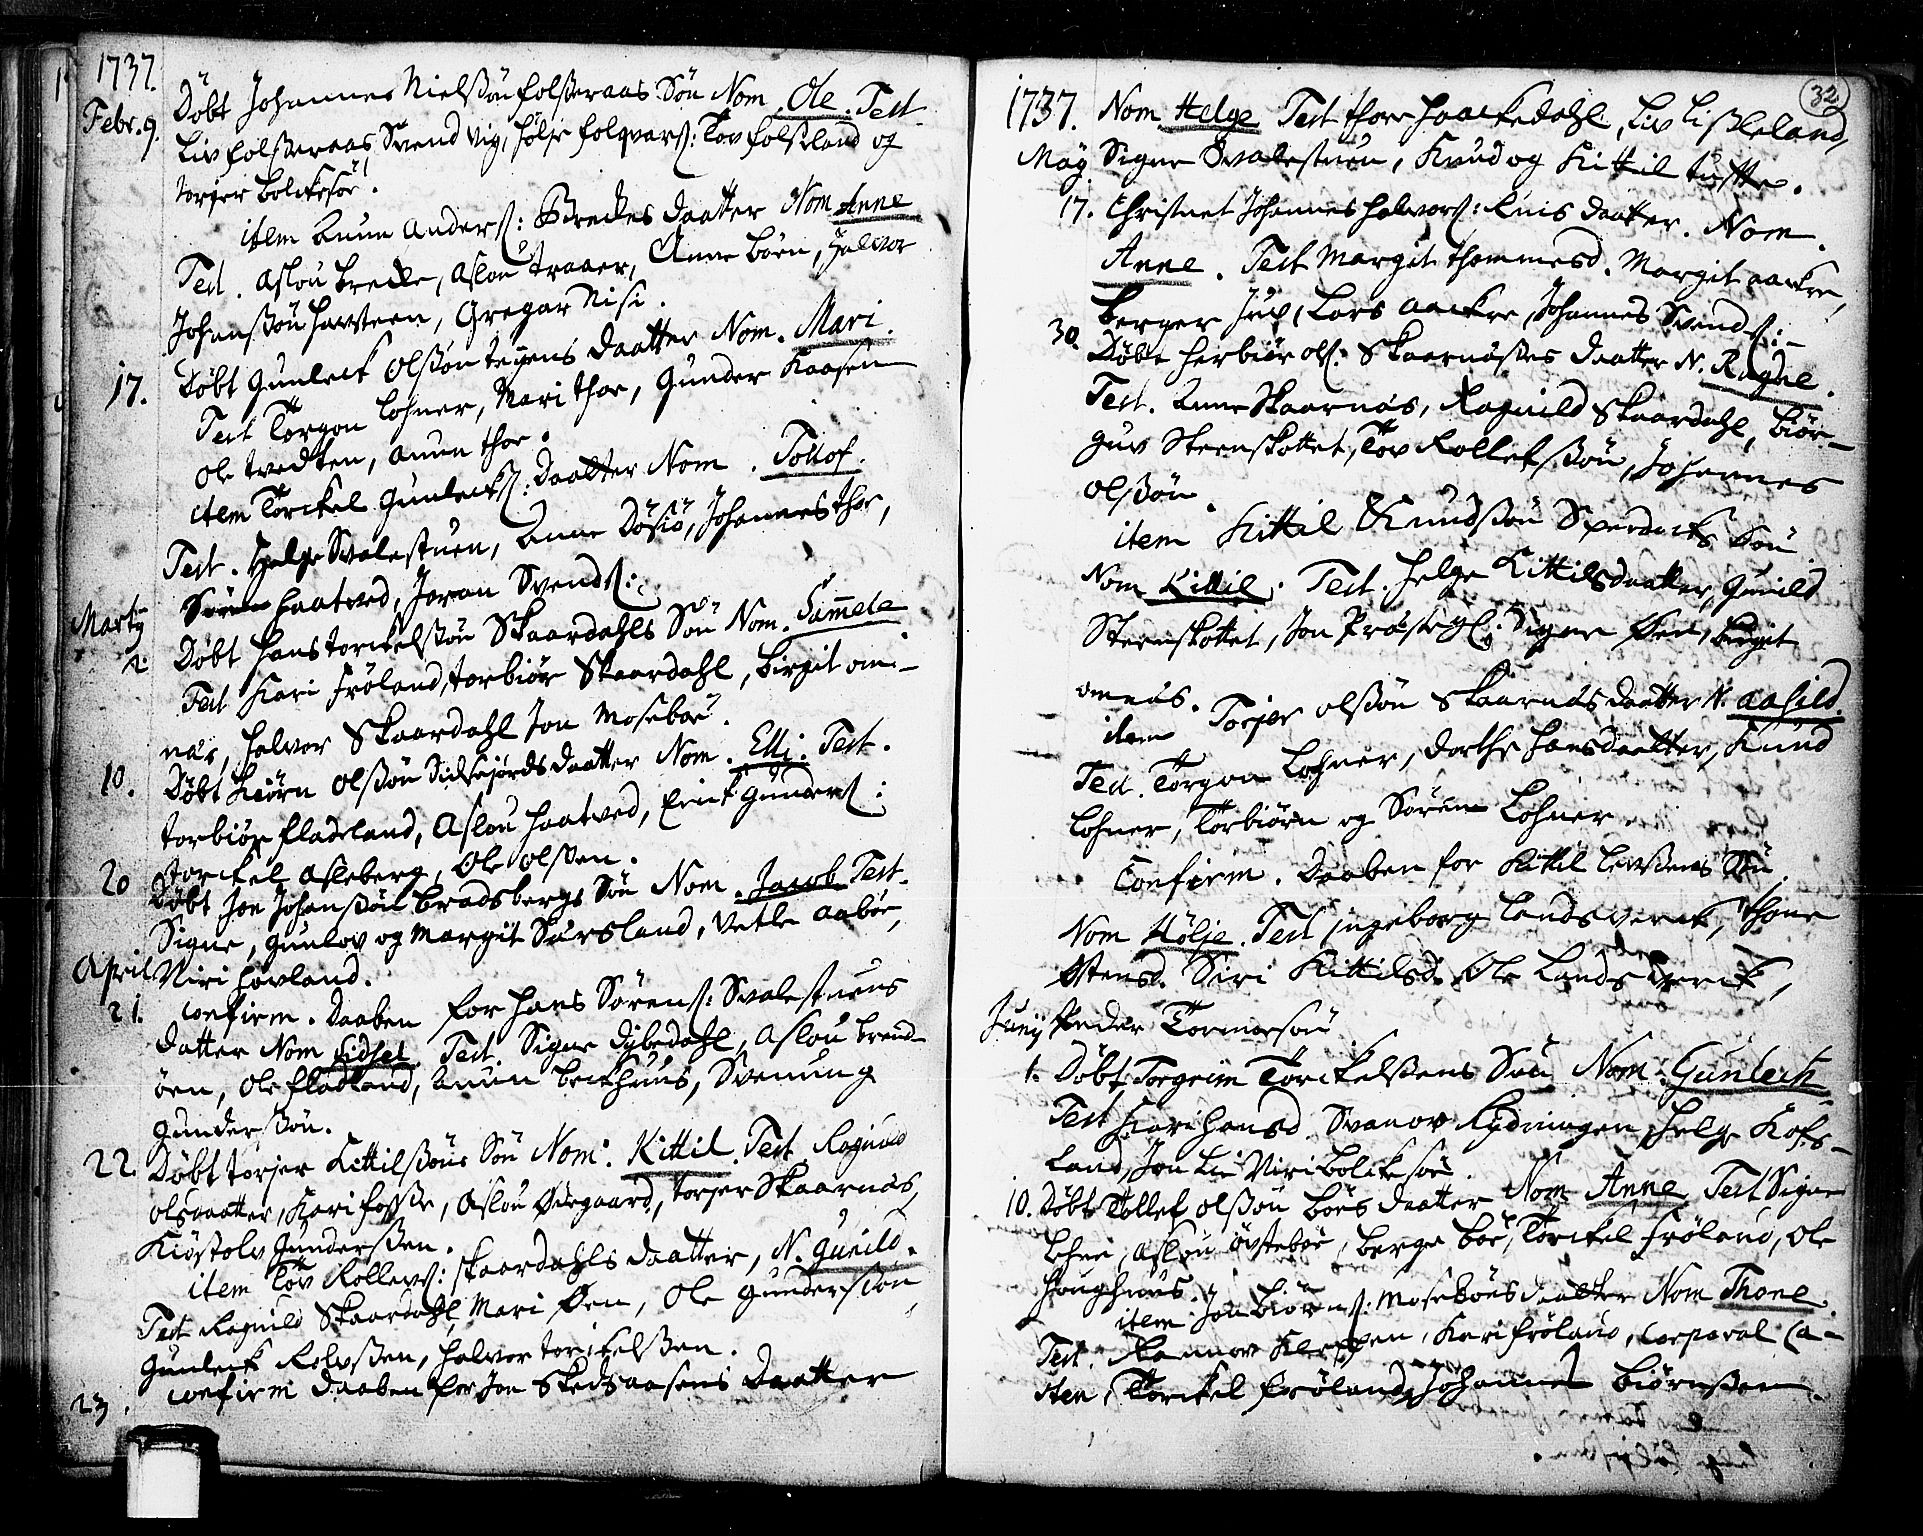 1737.
Febr. 9. Döbt Johannes Nielssön folseraas Sön Nom. Ole. Test
Liv folseraas, Svend Vig, Hölje folqvars: Tov folseland og
torjer bolckesöe.
item Anun Anders: Breckes daatter Nom Anne
Test. Aslou brecke, Aslou traaer, Anne böen, Halvor
Johanssön Havsteen, Gregar Nisi.
17. Döbt Gunleck Olssön teyens daatter Nom. Mari.
Test Torgon Lohner, Mari thor, Gunder Kaasen
Ole tvedten, Anun thor.
item Torckel Gunlecks: Daatter Nom. Tollof.
Test. Helge Svalestuen, Anne Dösiö, Johannes thor,
Sören Haatved, Joran Svends:
Martij
2. Döbt Hans torckelssön Skaardahls Sön Nom. Samele
Test Kari Fröland, torbiör Skaardahl, birgit om-
näs, Halvor Skaardahl Jon Moseboe.
10. Döbt Kiörn Olssön Sidsefjords daatter Nom. Elli. Test.
torbiör fladeland, Aslou Haatved, Gunders:
torckel Asleberg, Ole Olssen.
20 Döbt Jon Johanssön bradsbergs Sön Nom. Jacob Test.
Signe, Gunlov og Margit Sårsland, Vetle Aaböe,
April Niri Hovland.
21. Confirm. Daaben for Hans Sörens: Svalestuens
Datter Nom Sidsel Test. Signe Dybedahl, Aslou brend-
öen, Ole fladland, Anun beckhuus, Svenung
Gunderssön.
22. Döbt torjer Kittilssöns Sön Nom. Kittil. Test Ragnild
olsdaatter, Kari fosse, Aslou Ödegaard, torjer Skaarnäs,
Kiöstolv Gunderssen.
item Tov Rollevs: Skaardahls daatter, N. Gunild.
Test Ragnild Skaardahl, Mari Öen, Ole Gunderssön
Gunleck Rolvssen, Halvor torckelssen.
23. Confirm daaben for Jon Skedsaasens Daatter
32
1737. Nom Helge Test thor Haackedahl, Liv Lisleland,
Maÿ Signe Svalestuen, Knud og Kittil tufte.
17. Christnet Johannes Halvors: Lüis daatter. Nom.
Anne. Test Margit thommesd. Margit aackre,
berger Juv, Lars Aackre, Johannes Svends:
30. Döbt Herbiör ols: Skaarnäses daatter N. Ragne.
Test. Anne Skaarnäs, Ragnild Skaardahl, biör-
guv Steenstottet, Tov Rollefssön, Johannes
olssön.
item Kittil Knudssön Sperdecks Sön
Nom Kittil. Test. Helge Kittilsdaatter, Gunild
Steenstottet, Jon Prästegs: Signe Öen, birgit
omnäs.
item Torjer olssön Skaarnäs daatter N. Aasild.
Test. Torgon Lohner, Dorthe Hansdaatter, Knud
Lohner, Torbiörn og Sören Lohner.
Confirm. Daaben for Kittil Levssens Sön
Nom Hölje. Test ingeborg Landsverck, Thone
Stensd. Siri Kittilsd. Ole Landsverck,
Junÿ Peder Tormoesön
1. Döbt Torgrim Torckelssens Sön Nom. Gunleck
Test Kari Hansd Svanov Rydningen Helge Kofs-
land, Jon Lie Niri bolckesöe
10. Döbt Tollef olssön böes daatter Nom Anne Test Signe
Lohne, Aslou Östeböe, berge böe, Torckel Fröland, Ole
Houghuus.
item Jon Biörns: Moseböes daatter Nom Thone.
Test. Rannov Kleppen, Kari fröland, Corporal Ca-
sten, Torckel fröland, Johannes biörnssen.